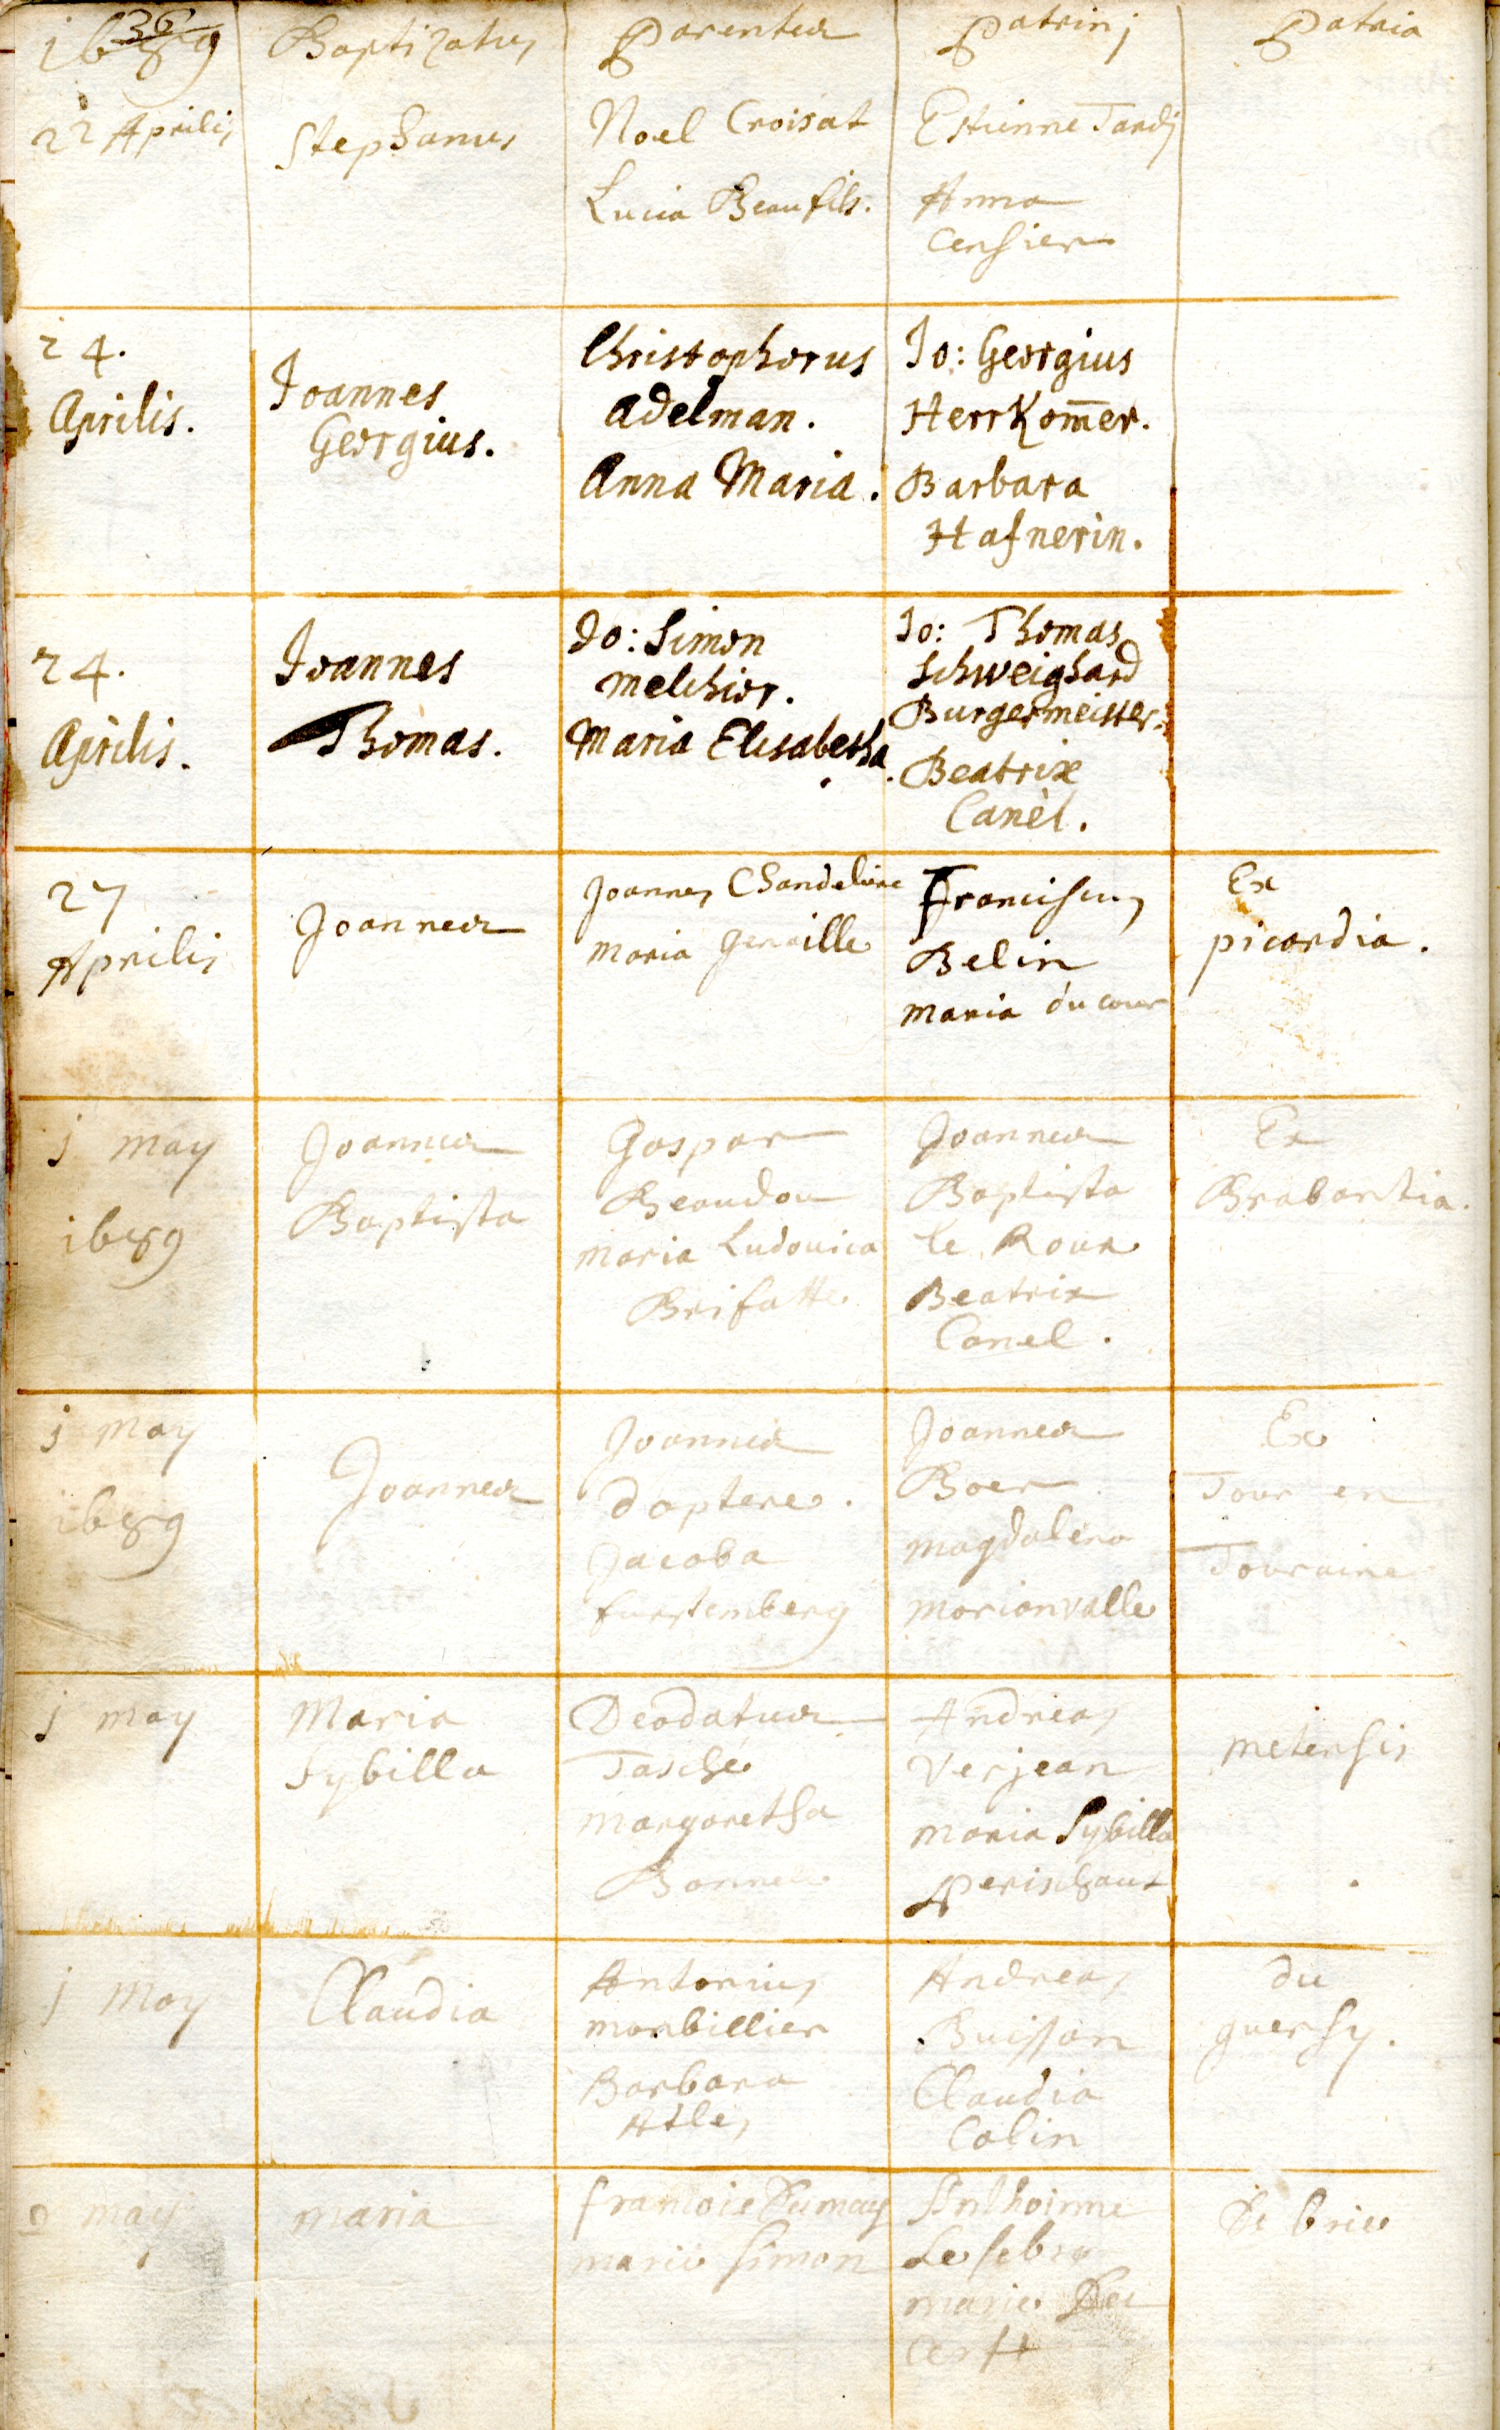 36
1689 Baptizatus Parentes Patrinj Patria
22 Aprilis
Stephanus
Noel Croisat
Lucia Beaufils.
Estienne Tardj
Anna
Censier
24.
Aprilis.
Joannes
Georgius.
Christophorus
Adelman.
Anna Maria.
Jo: Georgius
Herrkom̄er.
Barbara
Hafnerin.
24.
Aprilis.
Joannes
Thomas.
Jo: Simon
Melchior.
Maria Elisabetha.
Jo: Thomas
Schweighard
Burgermeister.
Beatrix
Canèl.
27
Aprilis
Joannes
Joannes Chandeliere
Maria Genaille
Franciscus
Belin
Maria du cour
Ex
picardia.
j may
1689
Joannes
Baptista
Gaspar
Beaudou
Maria Ludovica
Brifatte
Joannes
Baptista
le Roux
Beatrix
Canel.
Ex
Brabantia.
j may
1689
Joannes
Joannes
Daptere.
Jacoba
furstemberg
Joannes
Boer
Magdalena
Morionvalle
Ex
Tour en
Touraine
j may
Maria
Sybilla
Deodatus
Tasche
Margaretha
Bonne
Andreas
Verjean
Maria Sybilla
Perischaut
Metensis
j may
Claudia
Antonius
Monbillier
Barbara
Atles
Andreas
Buisson
Claudia
Colin
du
quersy.
2 may
maria
francois Dumay
marie simon
Anthoinne
Lefebre
marie De
cerft
De brie